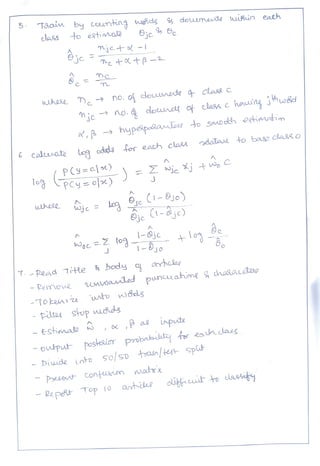 5. Train by counting words & documents within each
class to estimate θ̂jc & θ̂c
θ̂jc = njc + α - 1 / nc + α + β - 2
θ̂c = nc / n
where nc → no. of documents of class c
njc → no. of documents of class c having jth word
α, β → hyperparameters to smooth estimation
6. calculate log odds for each class relative to base class 0
log ( P(y=c|x) / P(y=0|x) ) = Σj ŵjc xj + ŵoc
where ŵjc = log θ̂jc (1-θ̂jo) / θ̂jo (1-θ̂jc)
ŵoc = Σj log 1-θ̂jc / 1-θ̂jo + log θ̂c / θ̂o
7. - Read Title & body of articles
- Remove unwanted punctuations & characters
- Tokenize into words
- Filter stop words
- Estimate ŵ, α, β as inputs
- output posterior probability for each class
- Divide into 50/50 train/test split
- Present confusion matrix
- Report Top 10 articles difficult to classify